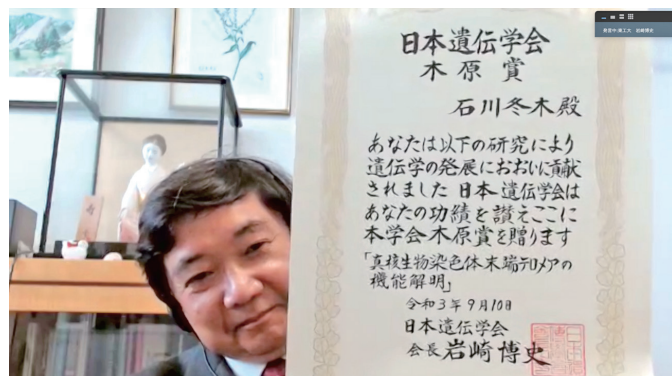 日本遺伝学会
木原賞
石川冬木殿
あなたは以下の研究により
遺伝学の発展におおいに貢献
されました 日本遺伝学会は
あなたの功績を讃えここに
本学会木原賞を贈ります
「真核生物染色体末端テロメアの
機能解明」
令和3年9月10日
日本遺伝学会
会長 岩崎博史